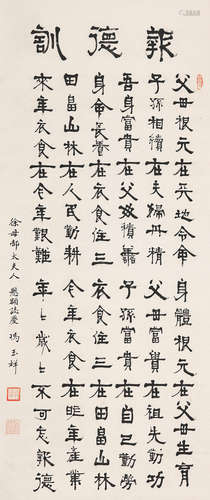 報德訓
父母根元在天地令命身體根元在父母生育
子孫相續在夫婦丹精父母富貴在祖先勤功
吾身富貴在父母積善子孫富貴在自己勤勞
身命長養在衣食住三衣食住三在田畠山林
田畠山林在人民勤耕今年衣食在昨年產業
來年衣食在今年艱難年々歲々不可忘報德
徐母郝太夫人 誌慶 馮玉祥